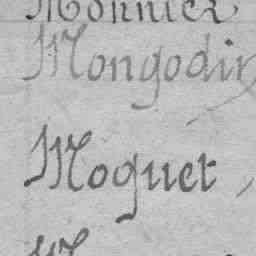 Monnier
Mongodin
Moquet,